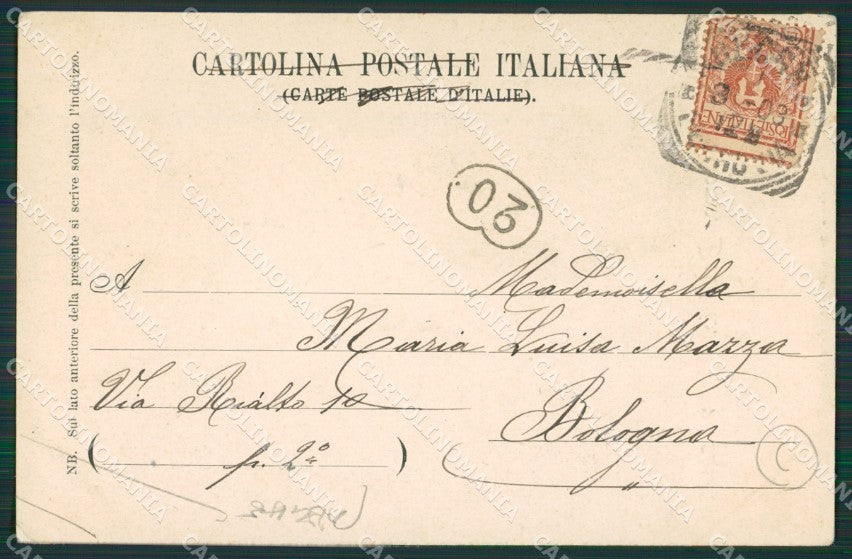 CARTOLINA POSTALE ITALIANA
(CARTE POSTALE D'ITALIE).
NB. Sul lato anteriore della presente si scrive soltanto l'indirizzo.
POSTE ITALIANE
20
A Mademoiselle
Maria Luisa Mazza
Via Rialto 10
Bologna
(p. 2º)
CARTOLINOMANIA